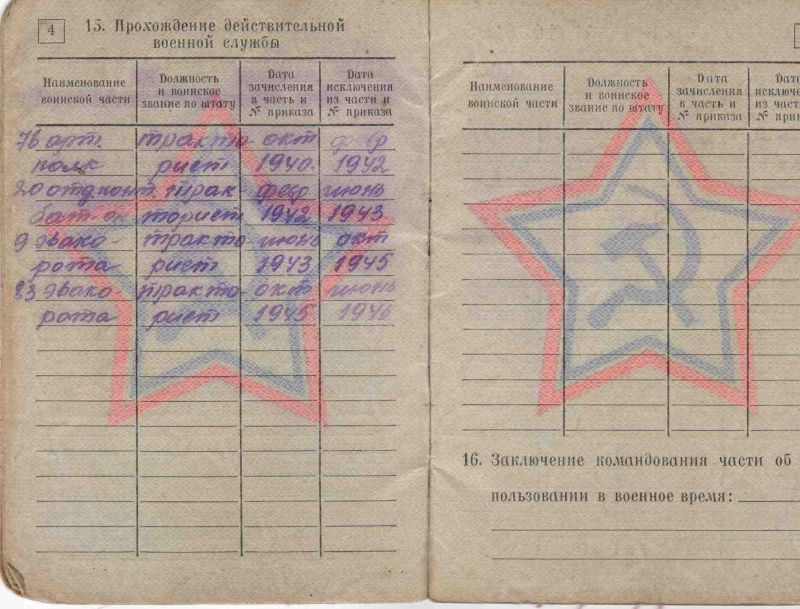 4
15. Прохождение действительной
военной службы
Наименование
воинской части
Должность
и воинское
звание по штату
Дата
зачисления
в часть и
№ приказа
Дата
исключения
из части и
№ приказа
76 арт. тракто- окт
полк рист 1940. 1942
20 трак февр июнь
бат-он торист 1942 1943
9 эвако- тракто июнь окт
рота рист 1943 1945
83 эвако тракто- окт июнь
рота рист 1945 1946
Наименование
воинской части
Должность
и воинское
звание по штату
Дата
зачисления
в часть и
№ приказа
Дата
исключе
из част
№ при
16. Заключение командования части об
пользовании в военное время: